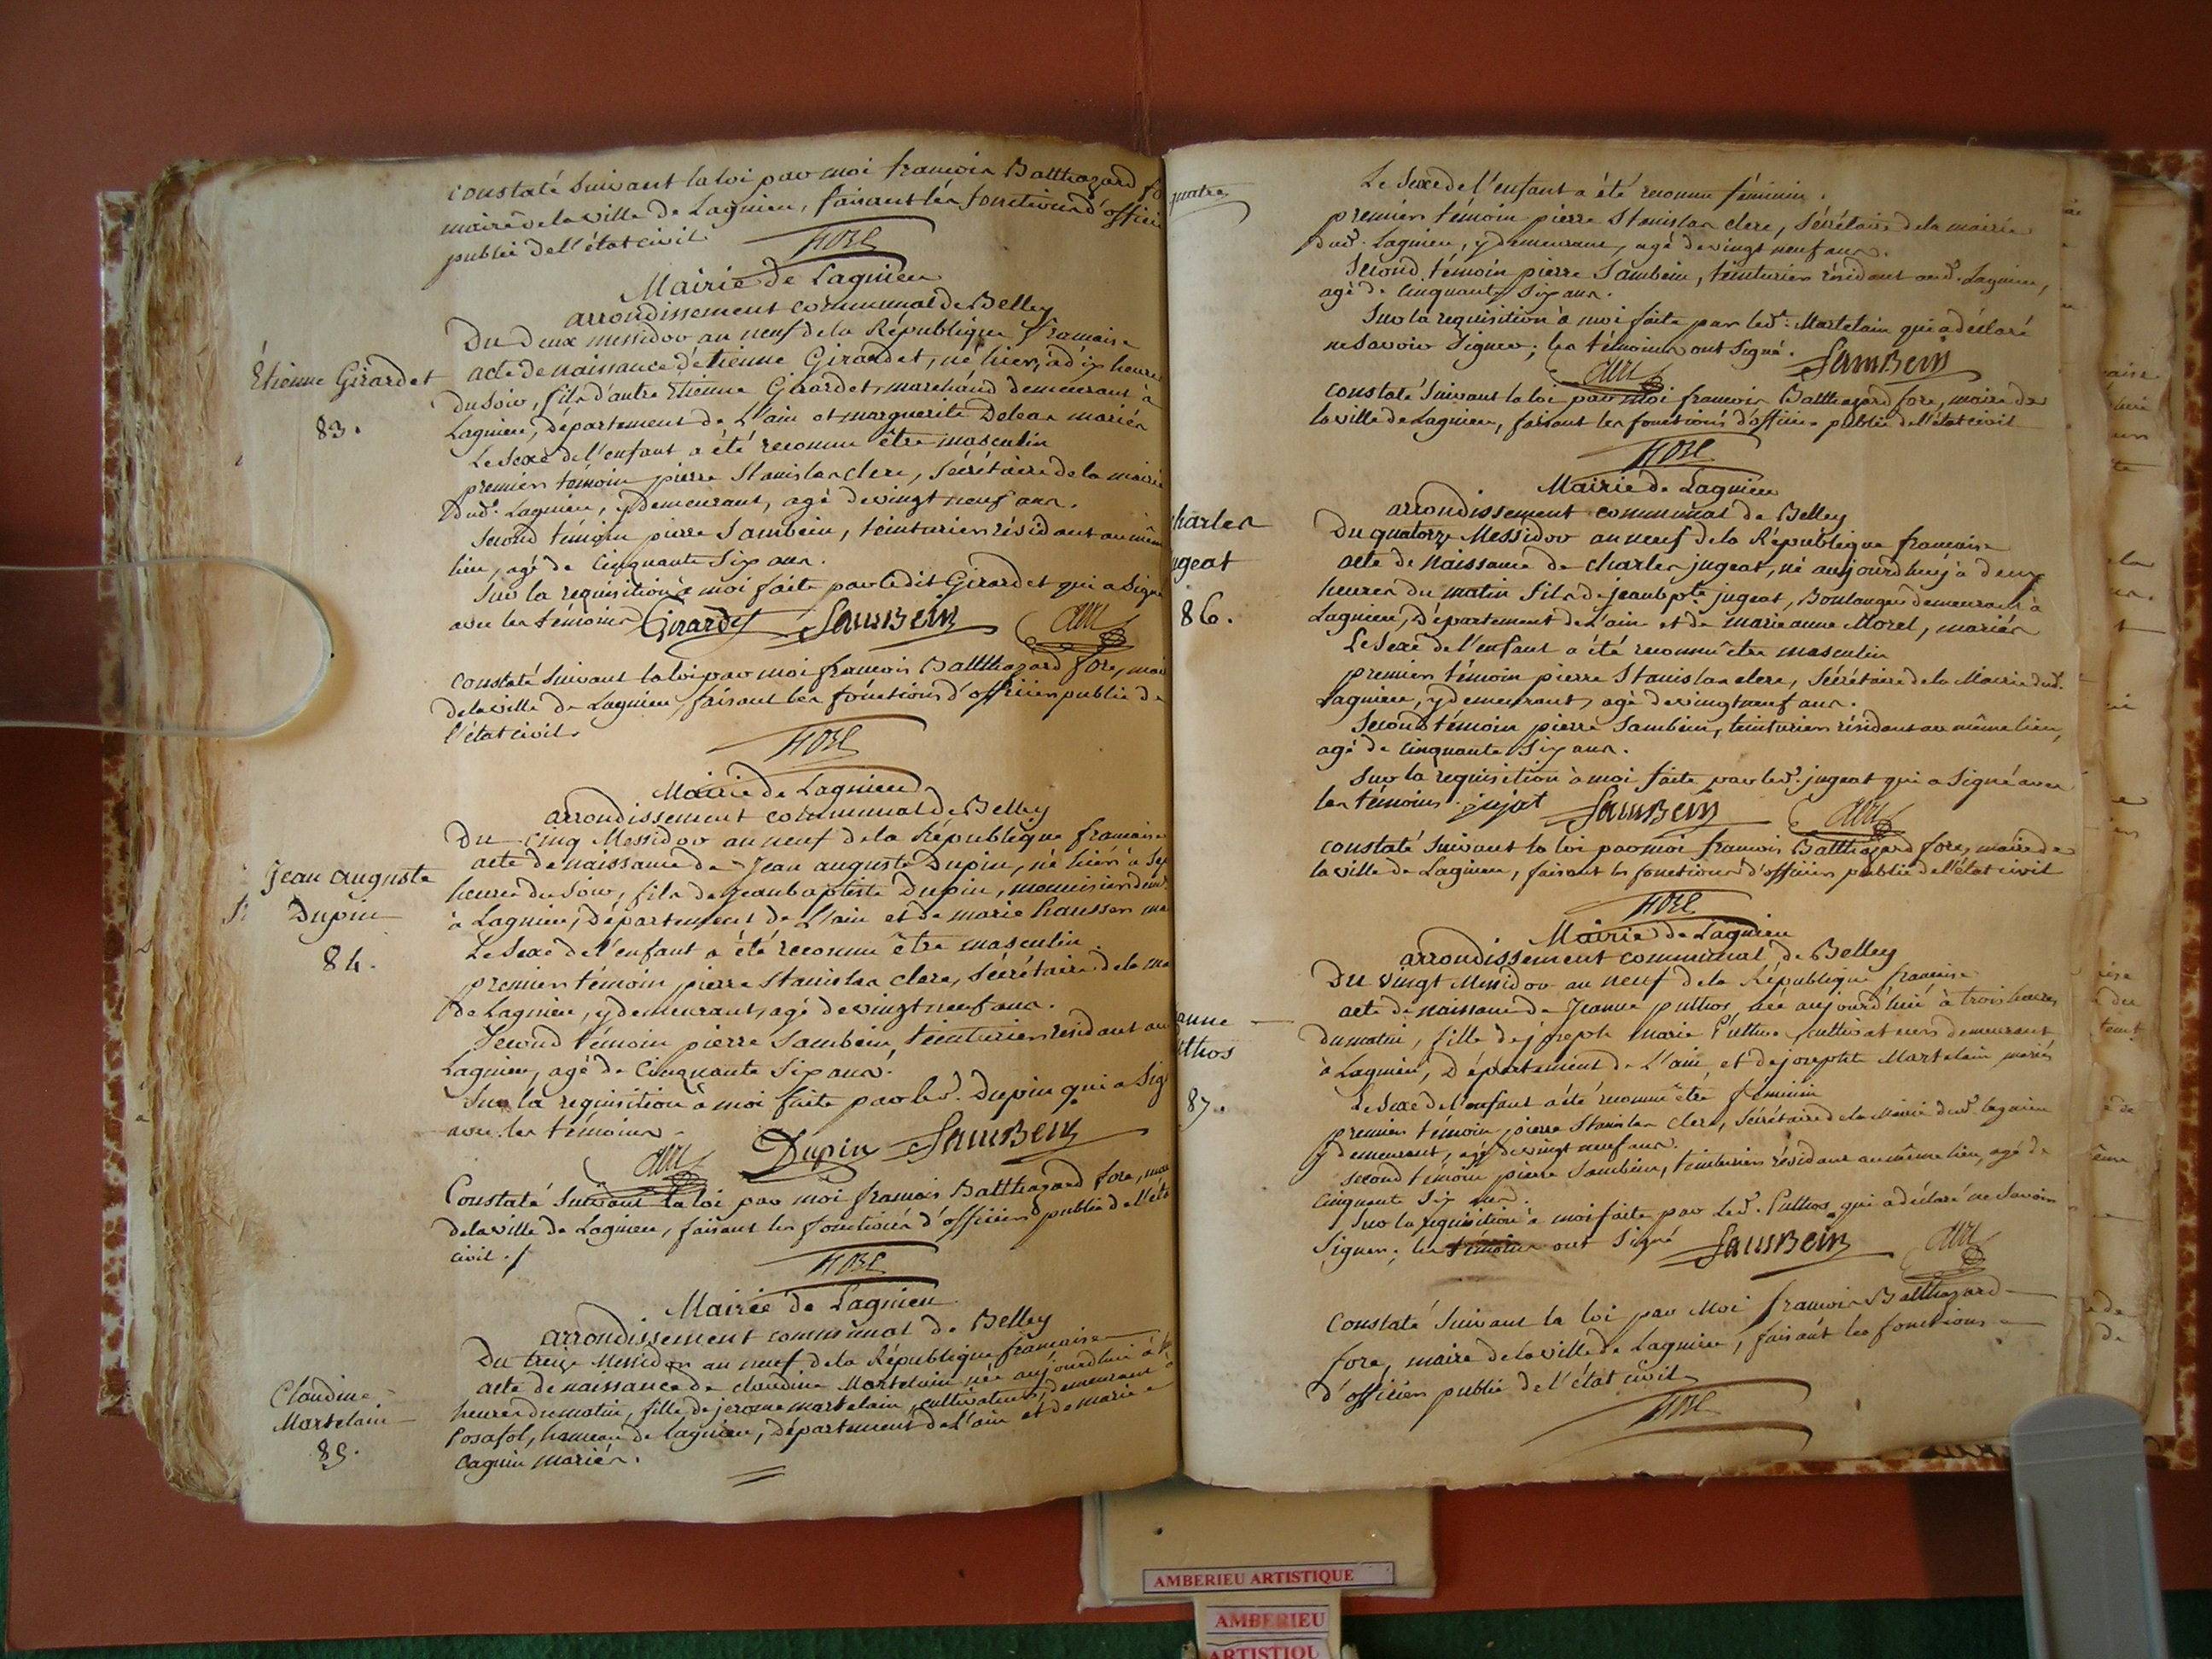 constaté Suivant la loi par moi francois Balthazard fo
maire de la ville de Lagnieu, faisant les fonctions d'offici
public de l'état civil
FORE
Mairie de Lagnieu
arrondissement communal de Belley
Du deux messidor an neuf de la République francaise
Étienne Girardet
83.
acte de naissance d'etienne Girardet, né hier, à dix heures
du soir, fils d'autre Etienne Girardet, marchand demeurant à
Lagnieu, département de L'ain et marguerite mariés
Le Sexe de l'enfant a été reconnu être masculin
premier témoin pierre Stanislas clerc, Sécrétaire de la mairie
dud. Lagnieu, y demeurant, agé de vingt neuf ans.
Second témoin pierre Sambein, teinturier résidant au mêm
lieu, agé de Cinquante Six ans.
Sur la requisition à moi faite par le dit Girardet qui a Signé
avec les témoins Girardet SamBein
constaté Suivant la loi par moi francois Balthazard fore, mair
de la ville de Lagnieu, faisant les fonctions d'officier public de
l'état civil
FORE
Mairie de Lagnieu
arrondissement communal de Belley
Du cinq Messidor an neuf de la République francaise
Jean auguste
Dupin
84.
acte de naissance de Jean auguste Dupin, né hier à Sep
heures du Soir, fils de Jean baptiste Dupin, menuisier dem.
à Lagnieu, Département de L'ain et de marie ma
Le Sexe de l'enfant a été reconnu être masculin.
premier témoin pierre Stanislas clerc, Sécrétaire de la ma
de Lagnieu, y demeurant, agé de vingt neuf ans.
Second témoin pierre Sambein, teinturier residant au
Lagnieu, agé de Cinquante Six ans.
Sur la requisition à moi faite par led. Dupin qui a Sig
avec les témoins
Dupin SamBein
Constaté Suivant la loi par moi francois Balthazard fore, mai
de la ville de Lagnieu, faisant les fonctions d'officier public de l'éta
civil ./
FORE
Mairie de Lagnieu
arrondissement communal de Belley
Du treize Messidor an neuf de la République francaise
Claudine
Martelain
85.
acte de naissance de claudine Martelain née aujourd'hui à
heures du matin, fille de jerome martelain, cultivateur, demeurant à
Posafol, hameau de lagnieu, département de L'ain et de marie
caguin mariés.
quatre
Le Sexe de l'enfant a été reconnu féminin.
premier témoin pierre Stanislas clerc, Sécrétaire de la mairie
dud. Lagnieu, y demeurant, agé de vingt neuf ans.
Second témoin pierre Sambein, teinturier résidant aud. Lagnieu,
agé de Cinquante Six ans.
Sur la requisition à moi faite par led. Martelain qui a déclaré
ne Savoir Signer; les témoins ont Signé. SamBein
constaté Suivant la loi par moi francois Balthazard fore, maire de
la ville de Lagnieu, faisant les fonctions d'officier public de l'état civil
FORE
Mairie de Lagnieu
arrondissement communal de Belley
harles
ugeat
86.
Du quatorze Messidor an neuf de la République francaise
acte de naissance de charles jugeat, né aujourdhuy à deux
heures du matin fils de jean bpte jugeat, Boulanger demeurant à
Lagnieu, Département de L'ain et de marie anne Morel, mariés
Le Sexe de l'enfant a été reconnu être masculin
premier témoin pierre Stanislas clerc, Sécrétaire de la Mairie dud.
Lagnieu, y demeurant, agé de vingt neuf ans.
Second témoin pierre Sambein, teinturier résidant au même lieu,
agé de Cinquante Six ans.
Sur la requisition à moi faite par led. jugeat qui a Signé avec
les témoins. jujat SamBein
constaté Suivant la loi par moi francois Balthazard fore, maire de
la ville de Lagnieu, faisant les fonctions d'officier public de l'état civil
FORE
Mairie de Lagnieu
arrondissement communal de Belley
Du vingt Messidor an neuf de la République francaise
anne
thos
87.
acte de naissance de Jeanne puthos, née aujourd'hui à trois heures
du matin, fille de joseph marie Puthos cultivateur demeurant
à Lagnieu, Département de L'ain, et de josephte Martelain mariés
Le Sexe de l'enfant a été reconnu être féminin
premier témoin pierre Stanislas clerc, Sécrétaire de la Mairie dud. lagnieu
y demeurant, agé de vingt neuf ans.
second témoin pierre Sambein, teinturier résidant au même lieu, agé de
Cinquante Six ans.
Sur la requisition à moi faite par led. Puthos qui a déclaré ne Savoir
Signer; les témoins ont Signé SamBein
Constaté Suivant la loi par Moi francois Balthazard
fore, maire de la ville de Lagnieu, faisant les fonctions
d'officier public de l'état civil
FORE
AMBERIEU ARTISTIQUE
AMBERIEU
ARTISTIQU